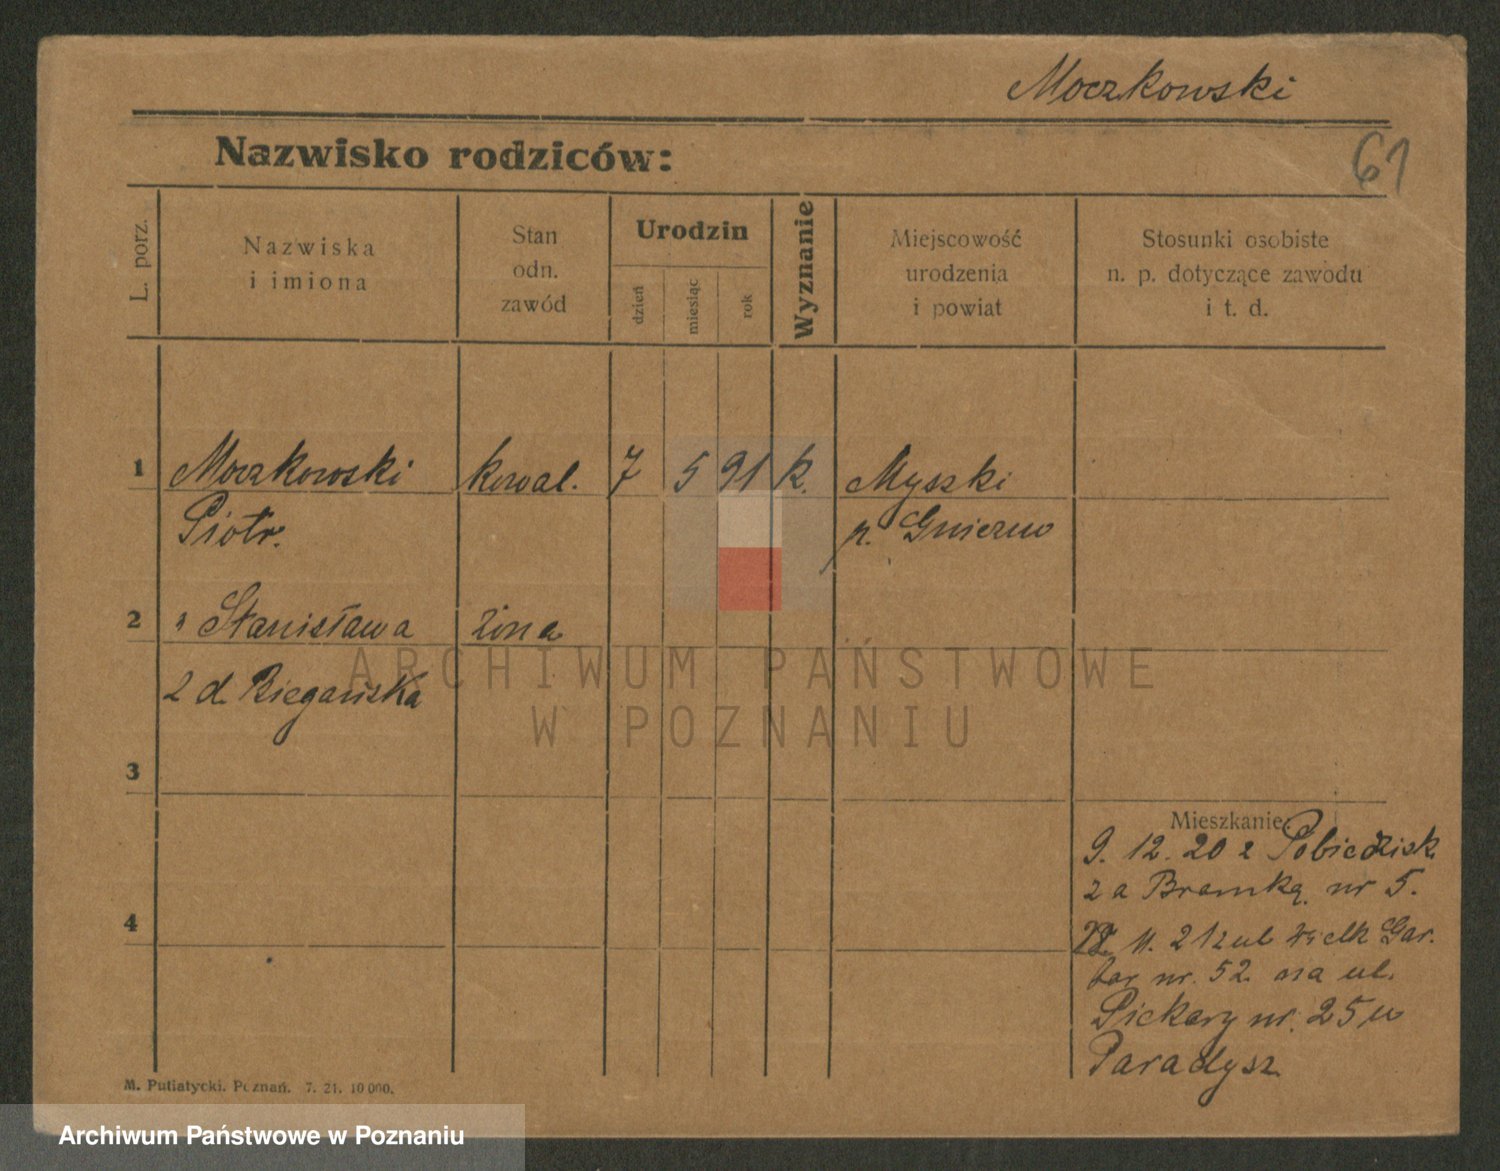 Moczkowski
Nazwisko rodziców:
61
L. porz.
Nazwiska
i imiona
Stan
odn.
zawód
Urodzin
dzień
miesiąc
rok
Wyznanie
Miejscowość
urodzenia
i powiat
Stosunki osobiste
n. p. dotyczące zawodu
i t. d.
1 Moczkowski kowal. 7 5 91 k. Myszki
Piotr. p. Gniezno
2 Stanisława żona
z d. Biegańska
3
4
Mieszkanie:
9. 12. 20 z Pobiedzisk
za Bramką nr 5.
11. 21 z ul Wielk Gar.
bar nr. 52. na ul.
Piekary nr. 25 u
Paradysz
M. Putiatycki. Poznań. 7. 21. 10 000.
ARCHIWUM PAŃSTWOWE
W POZNANIU
Archiwum Państwowe w Poznaniu